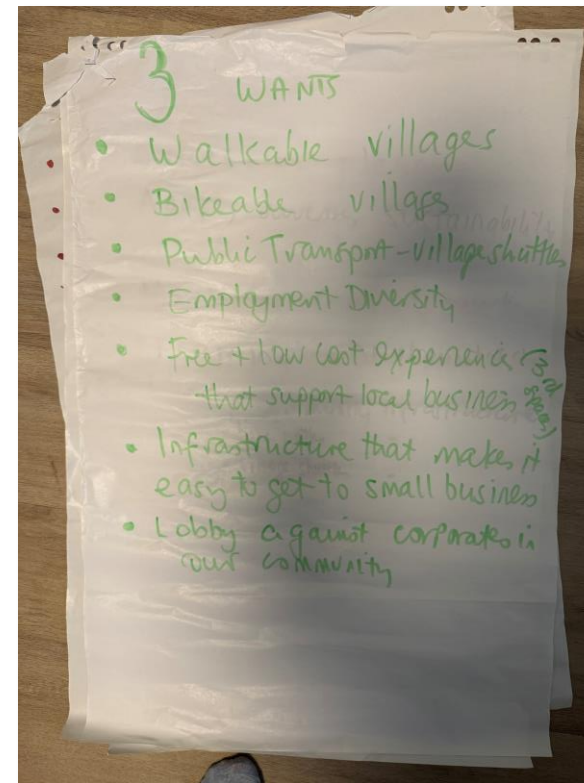 3 WANTS
• Walkable villages
• Bikeable village
• Public Transport - village shuttles
• Employment Diversity
• Free + low cost experiences (3rd spaces)
that support local business
• Infrastructure that makes it
easy to get to small business
• Lobby against corporates in
our community